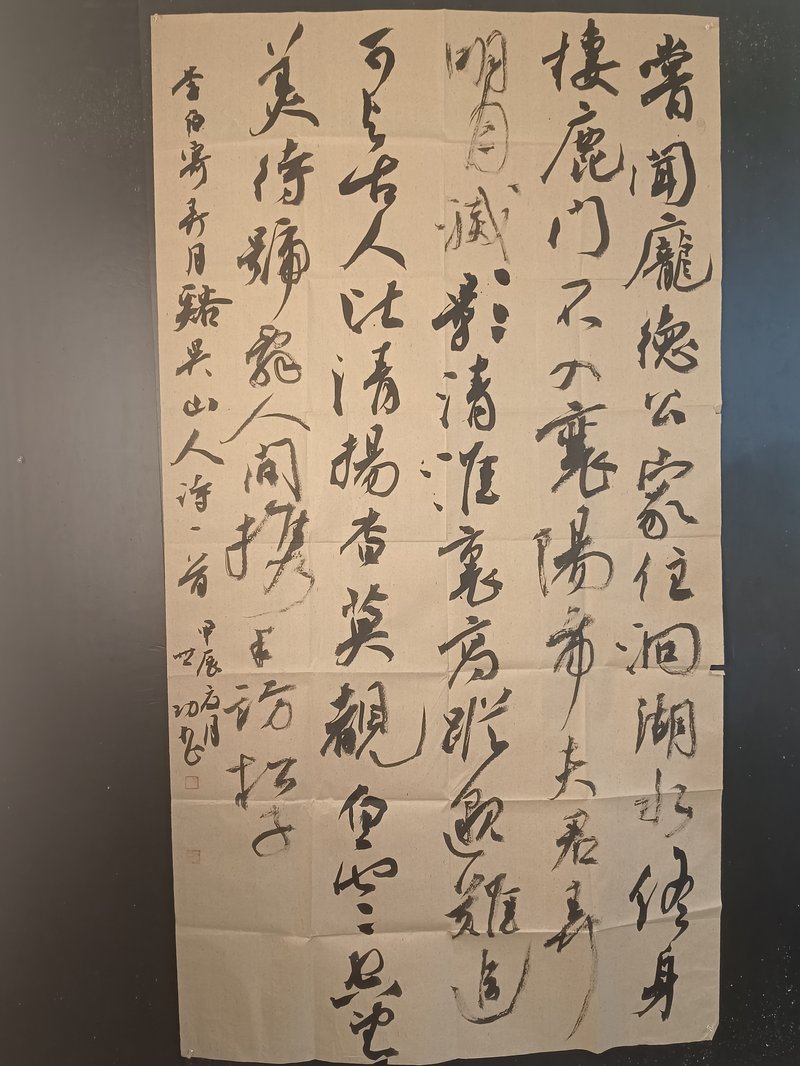 嘗聞龐德公家住洞湖水終身
棲鹿門不入襄陽市夫君弄
明月滅影清淮裏高蹤邈難追
可与古人比清揚杳莫覩白雲空望
美待號辭人間携手訪松子
李白寄弄月谿吳山人詩一首
甲辰月
世功書